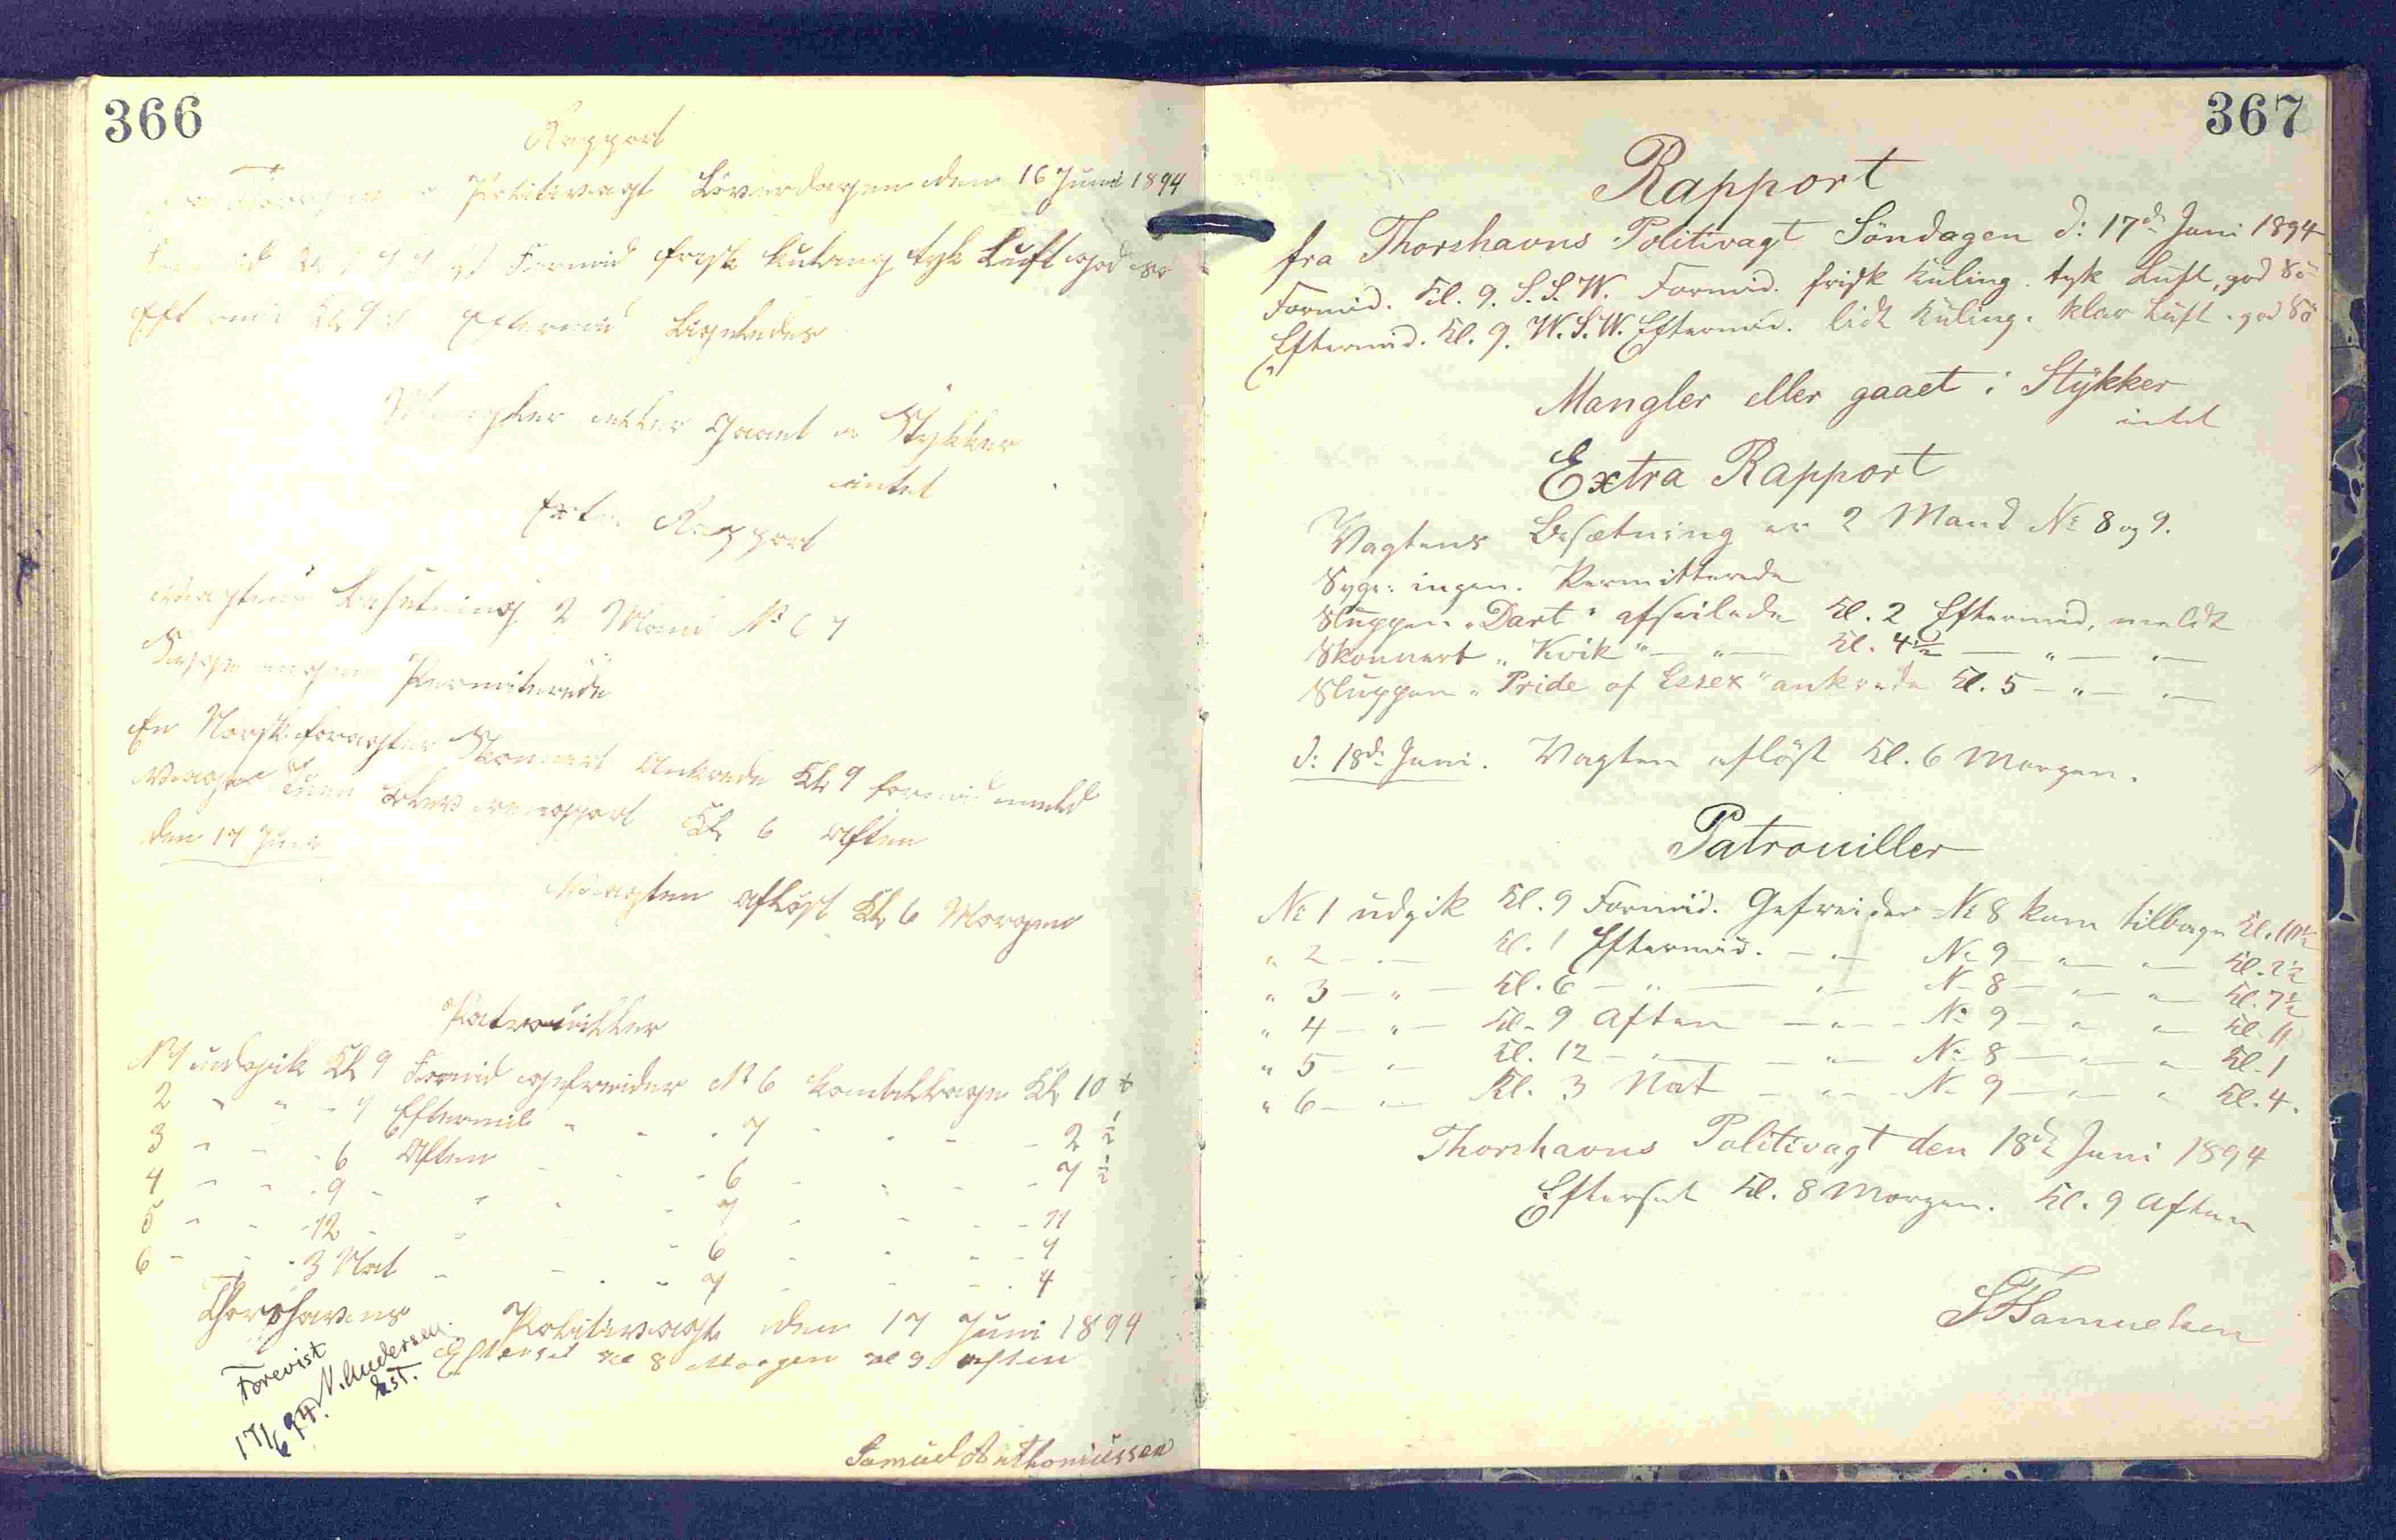 366
Rapport
Politivagt Löverdagen den 16 Juni 1894
Formid frisk kuling tyk Luft god Sø
Eftermid Kl 9 Eftermid Ligeledes
Mangler eller Gaaet i Stykker
intet
Extra Rapport
Vagtens Besetning 2 Mand No 6 7
Syge ingen Permiterede
En Norsk Skonnert Ankrede Kl 9 formid meld
Kl 6 Aften
den 17 Juni
Vagten Afløst Kl 6 Morgen
Patrouiller
No 1 udgik Kl 9 Formid gefreider No 6 kom tilbage Kl 10 ½
2 " " - 1 Eftermid " " " 7 " " - - 2 ½
3 " - - 6 Aften - - - 6 - - - - 7 ½
4 " " - 9 - " " - 7 - - - - 11
5 " - - 12 - " - 6 - - - - 1
6 - - - 3 Nat - - - - 7 - - - - 4
Thorshavns Politivagt den 17 Juni 1894
Efterset Kl 8 Morgen Kl 9 Aften
Forevist
17/6 94. N. Andersen
kst.
Samuel Anthoniussen
367
Rapport
fra Thorshavns Politivagt Söndagen d: 17de Juni 1894
Formid. Kl. 9. S.S.W. Formid. frisk Kuling. tyk Luft, god Sö
Eftermid. Kl. 9. W.S.W. Eftermid. lidt Kuling. klar Luft. god Sö
Mangler eller gaaet i Stykker
intet
Extra Rapport
Vagtens Besætning er 2 Mand No 8 og 9.
Syge: ingen. Permitterede
Sluppen „Dart" afseilede Kl. 2 Eftermid, meldt
Skonnert „Kvik" — " — Kl. 4½ — " — " —
Sluppen „Pride of Essex" ankrede Kl. 5 — " — " —
d: 18de Juni. Vagten aflöst Kl. 6 Morgen.
Patrouiller
No 1 udgik Kl. 9 Formid. Gefreider No 8 kom tilbage Kl. 10½
" 2 — " — Kl. 1 Eftermid. — " — No 9 — " — " — Kl. 2½
" 3 — " — Kl. 6 — " — — " — No 8 — " — " — Kl. 7½
" 4 — " — Kl. 9 Aften — " — No 9 — " — " — Kl. 11
" 5 — " — Kl. 12 — " — — " — No 8 — " — " — Kl. 1
" 6 — " — Kl. 3 Nat — " — No 9 — " — " — Kl. 4.
Thorshavns Politivagt den 18de Juni 1894
Efterset Kl. 8 Morgen. Kl. 9 Aften
Samuelsen